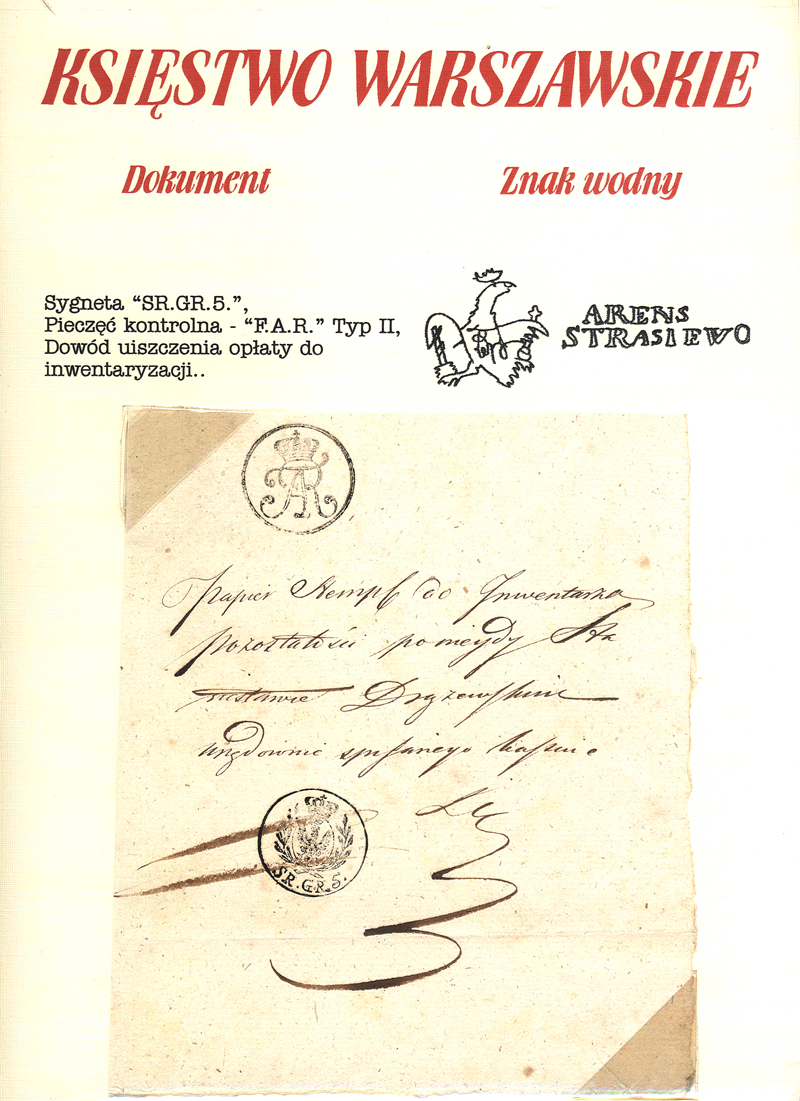 KSIĘSTWO WARSZAWSKIE
Dokument
Znak wodny
Sygneta “SR.GR.5.”,
Pieczęć kontrolna - “F.A.R.” Typ II,
Dowód uiszczenia opłaty do
inwentaryzacji..
ARENS
STRASIEWO
Papier Stempl do Inwentarza
pozostałości po
urzędownie
SR.GR.5.